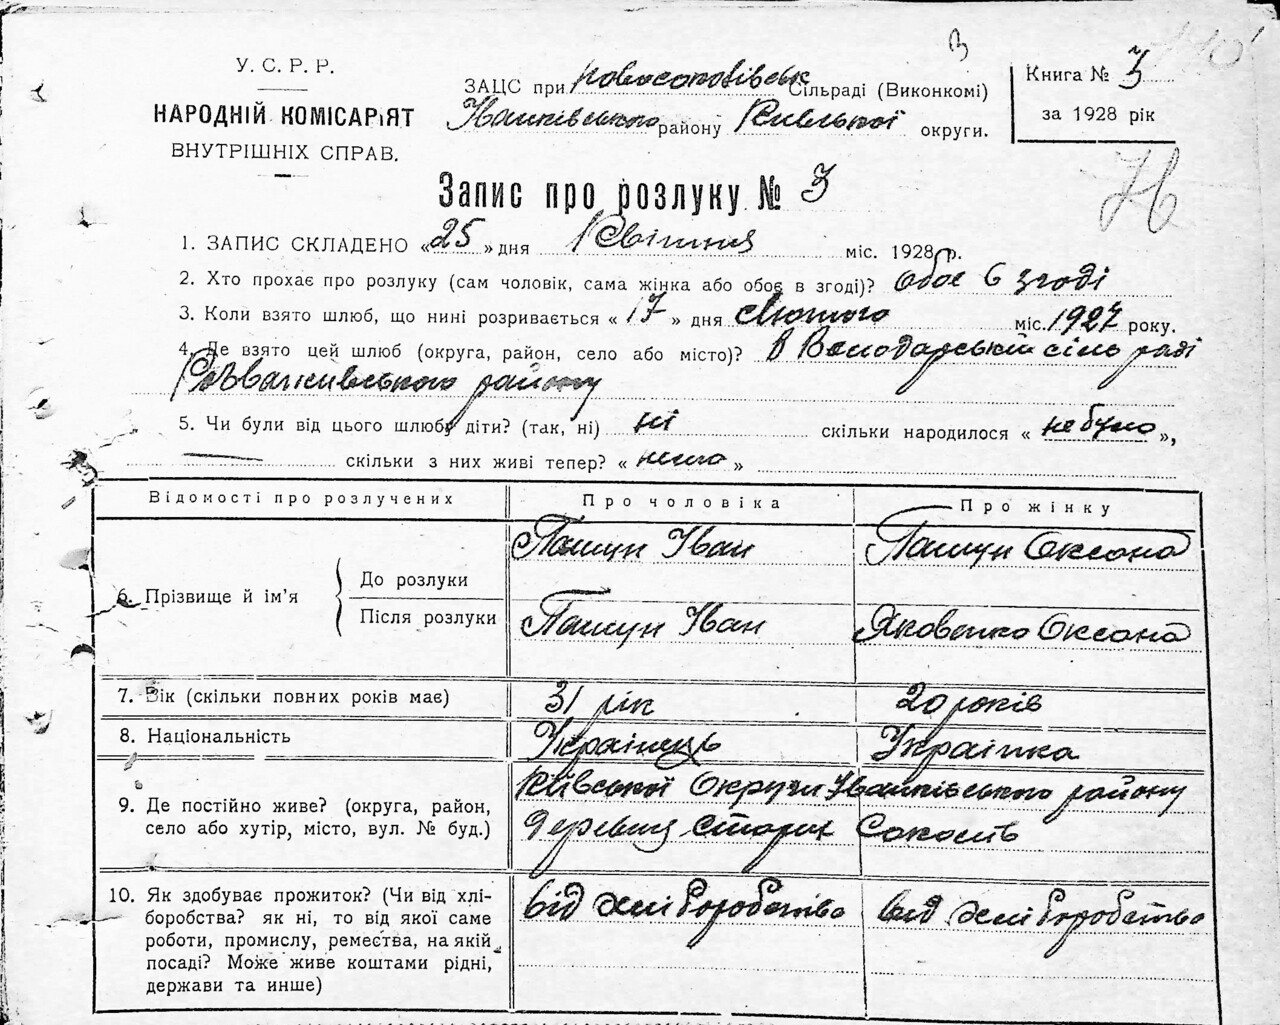 У. С. Р. Р.
НАРОДНІЙ КОМІСАРІЯТ
ВНУТРІШНІХ СПРАВ.
ЗАЦС при Сільраді (Виконкомі)
Іванківського району Київської округи.
Книга № 3
за 1928 рік
Запис про розлуку № 3
1. ЗАПИС СКЛАДЕНО «25» дня Квітня міс. 1928 р.
2. Хто прохає про розлуку (сам чоловік, сама жінка або обоє в згоді)? обоє в згоді
3. Коли взято шлюб, що нині розривається «17» дня Лютого міс. 1927 року.
4. Де взято цей шлюб (округа, район, село або місто)? в Володарській сіль раді
Розважівського району
5. Чи були від цього шлюбу діти? (так, ні) ні скільки народилося «не було»,
скільки з них живі тепер? «нема»
Відомості про розлучених Про чоловіка Про жінку
6. Прізвище й ім'я
До розлуки Пашун Іван Пашун Оксана
Після розлуки Пашун Іван Яковенко Оксана
7. Вік (скільки повних років має) 31 рік 20 років
8. Національність Українець Українка
9. Де постійно живе? (округа, район, Київської Округи Іванківського району
село або хутір, місто, вул. № буд.)
10. Як здобуває прожиток? (Чи від хлі- від хліборобства від хліборобства
боробства? як ні, то від якої саме
роботи, промислу, ремества, на якій
посаді? Може живе коштами рідні,
держави та инше)